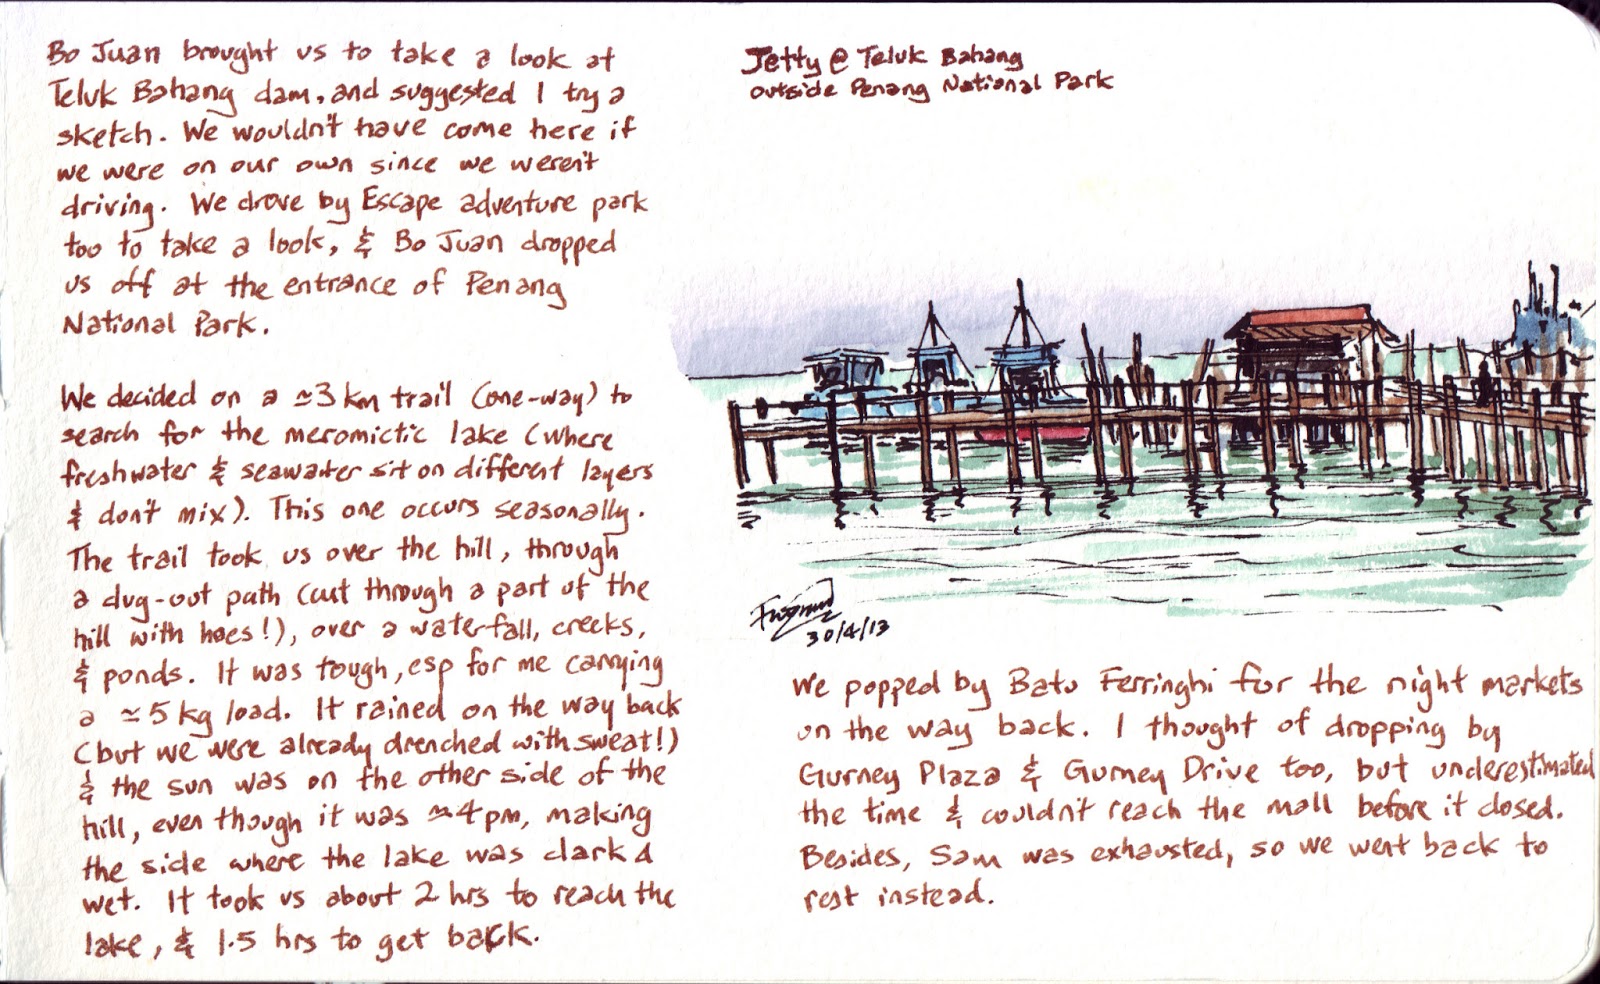 Bo Juan brought us to take a look at
Teluk Bahang dam, and suggested I try a
sketch. We wouldn't have come here if
we were on our own since we weren't
driving. We drove by Escape adventure park
too to take a look, & Bo Juan dropped
us off at the entrance of Penang
National Park.
We decided on a ≃3 km trail (one-way) to
search for the meromictic lake (where
freshwater & seawater sit on different layers
& don't mix). This one occurs seasonally.
The trail took us over the hill, through
a dug-out path (cut through a part of the
hill with hoes!), over a waterfall, creeks,
& ponds. It was tough, esp for me carrying
a ≃5 kg load. It rained on the way back
(but we were already drenched with sweat!)
& the sun was on the other side of the
hill, even though it was ≃4 pm, making
the side where the lake was dark &
wet. It took us about 2 hrs to reach the
lake, & 1.5 hrs to get back.
Jetty @ Teluk Bahang
outside Penang National Park
30/4/13
We popped by Batu Ferringhi for the night markets
on the way back. I thought of dropping by
Gurney Plaza & Gurney Drive too, but underestimated
the time & couldn't reach the mall before it closed.
Besides, Sam was exhausted, so we went back to
rest instead.